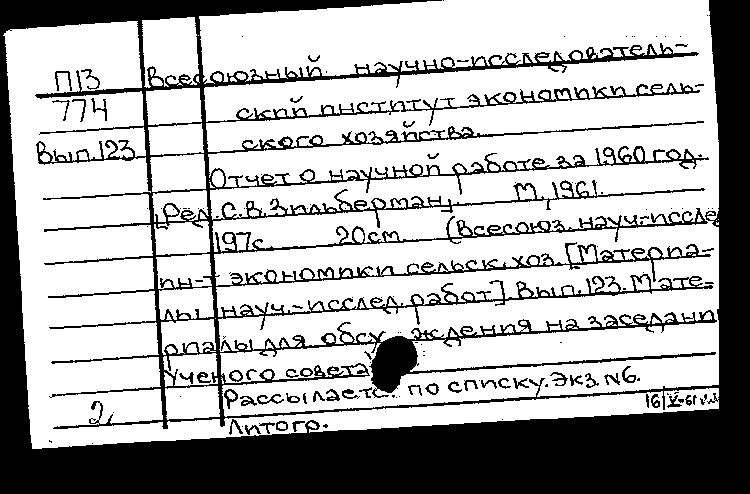 П13 Всесоюзный научно-исследователь-
774 ский институт экономики сель-
Вып.123 ского хозяйства.
Отчет о научной работе за 1960 год.
[Ред. С.В. Зильберман] М., 1961.
197с. 20см. (Всесоюз. науч.-исслед
ин-т экономики сельск. хоз. [Материа-
лы науч.-исслед. работ]. Вып. 123. Мате-
риалы для обсуждения на заседани
Ученого совета)
Рассылаетс. по списку. Экз. №6.
2. Литогр.